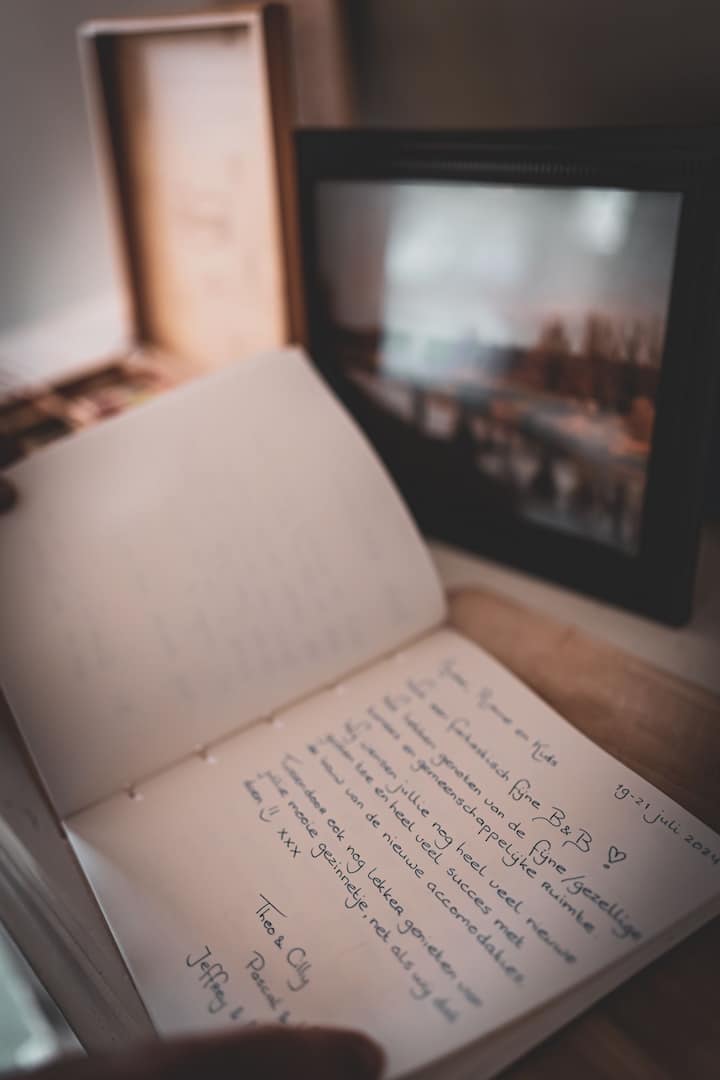 19-21 juli 2024
en Kids
een fantastisch fijne B&B ♡!
hebben genoten van de fijne/gezellige
en gemeenschappelijke ruimte.
wensen jullie nog heel veel nieuwe
en heel veel succes met
bouw van de nieuwe accomodaties.
ook nog lekker genieten van
jullie mooie gezinnetje, net als wij dat
doen!! xxx
Theo & Cilly
Pascal &
Jeffrey &